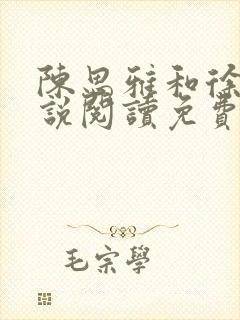 陳思雅和徐
說閱讀免費
毛宗學